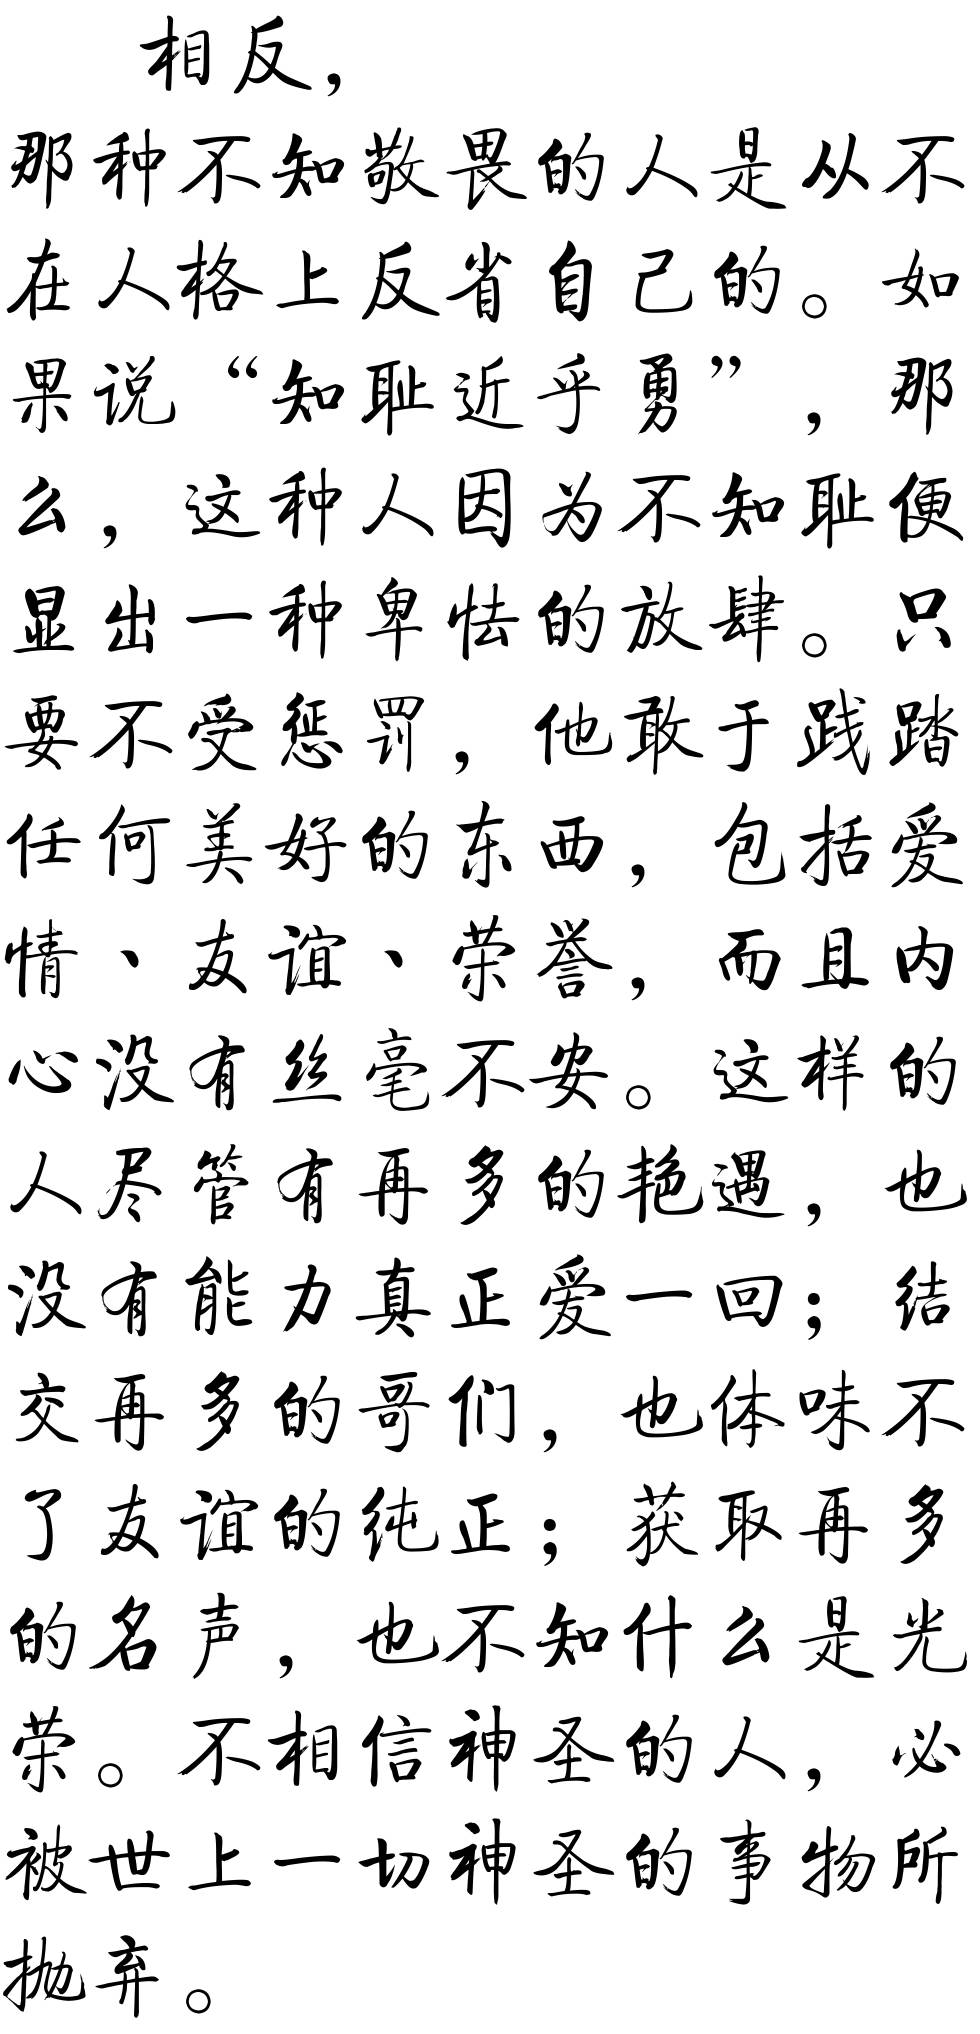 相反，
那种不知敬畏的人是从不
在人格上反省自己的。如
果说“知耻近乎勇”，那
么，这种人因为不知耻便
显出一种卑怯的放肆。只
要不受惩罚，他敢于践踏
任何美好的东西，包括爱
情、友谊、荣誉，而且内
心没有丝毫不安。这样的
人尽管有再多的艳遇，也
没有能力真正爱一回；结
交再多的哥们，也体味不
了友谊的纯正；获取再多
的名声，也不知什么是光
荣。不相信神圣的人，必
被世上一切神圣的事物所
抛弃。